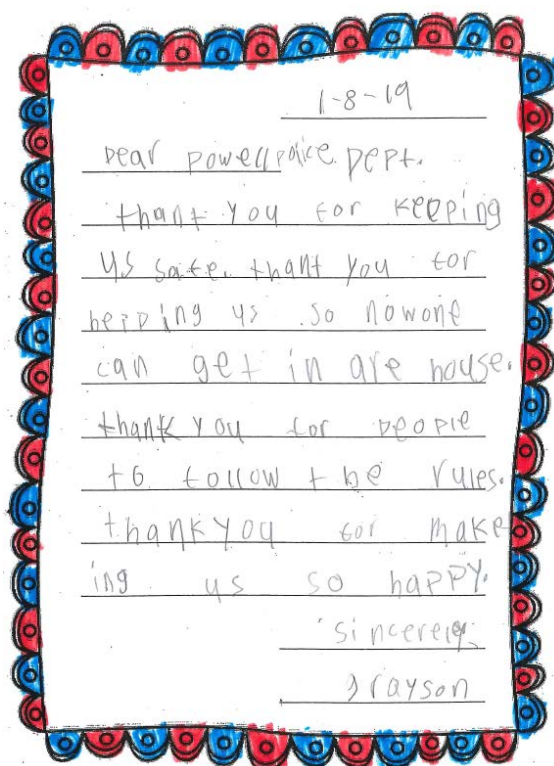 1-8-19
Dear Powell police Dept.
thank you for keeping
us safe. thank you for
helping us so nowone
can get in are house.
thank you for people
to follow the rules.
thank you for make
ing us so happy.
sincerely,
grayson